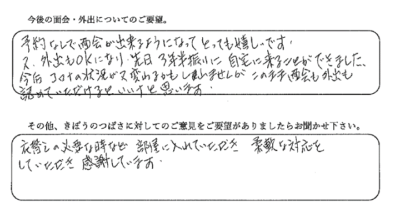 今後の面会・外出についてのご要望。
予約なしで面会が出来るようになってとっても嬉しいです。
又、外出もOKになり、先日3年半振りに自宅に来ることができました。
今后コロナの状況が又変わるかもしれませんがこのまま面会も外出も
認めていただけるといいなと思います。
その他、きぼうのつばさに対してのご意見をご要望がありましたらお聞かせ下さい。
衣替えの必要な時など 部屋に入れていただき 柔軟な対応を
していただき 感謝しています。